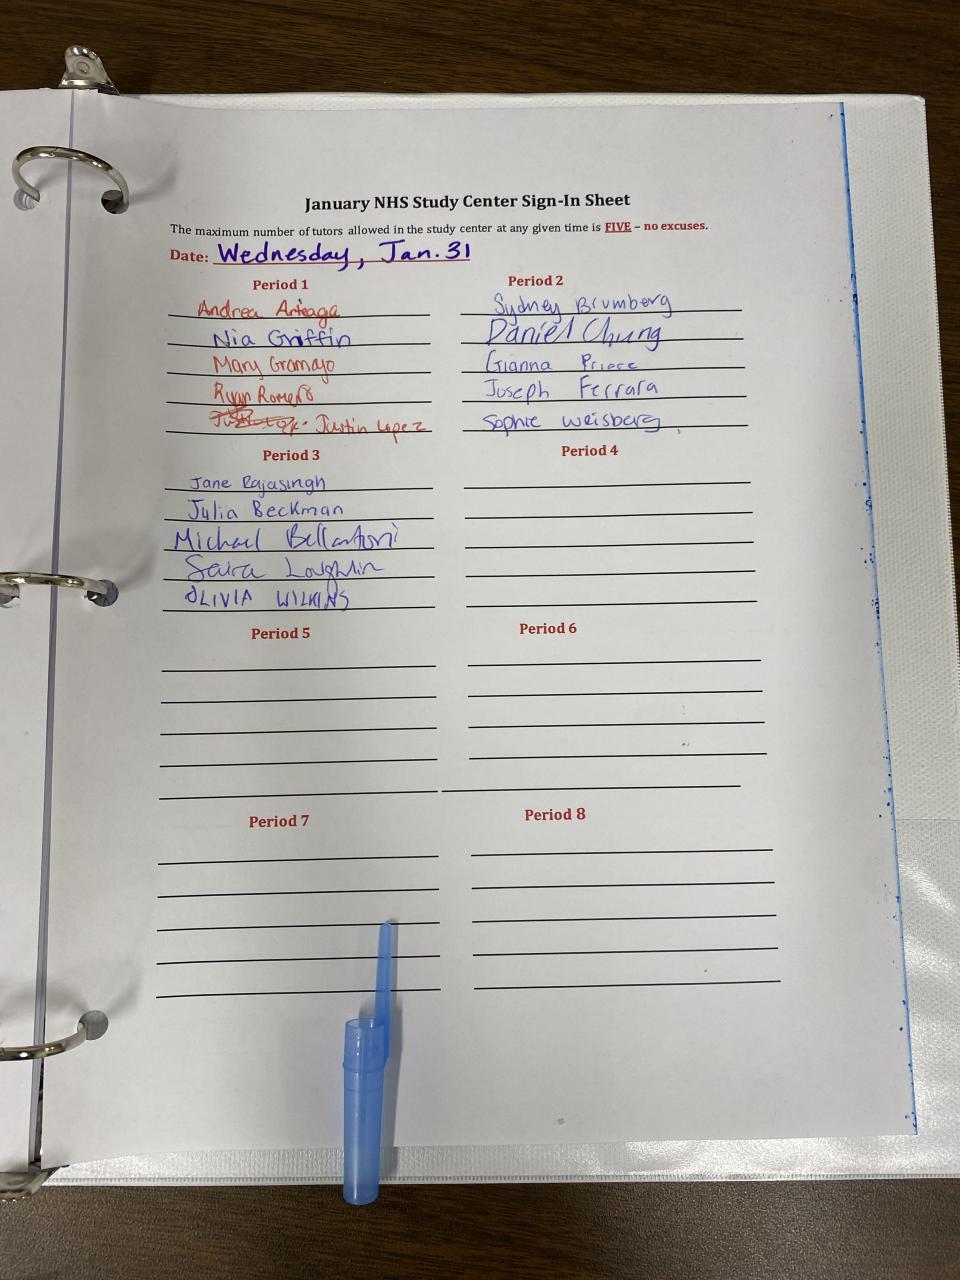 January NHS Study Center Sign-In Sheet
The maximum number of tutors allowed in the study center at any given time is FIVE – no excuses.
Date: Wednesday, Jan. 31
Period 1
Andrea Arteaga
Nia Griffin
Mary Gramajo
Ryan Romero
Justin Lopez
Period 2
Sydney Brumberg
Daniel Chung
Gianna
Joseph Ferrara
Sophie Weisberg
Period 3
Jane Rajasingh
Julia Beckman
Michael Bellantoni
Saira Loughlin
OLIVIA WILKINS
Period 4
Period 5
Period 6
Period 7
Period 8